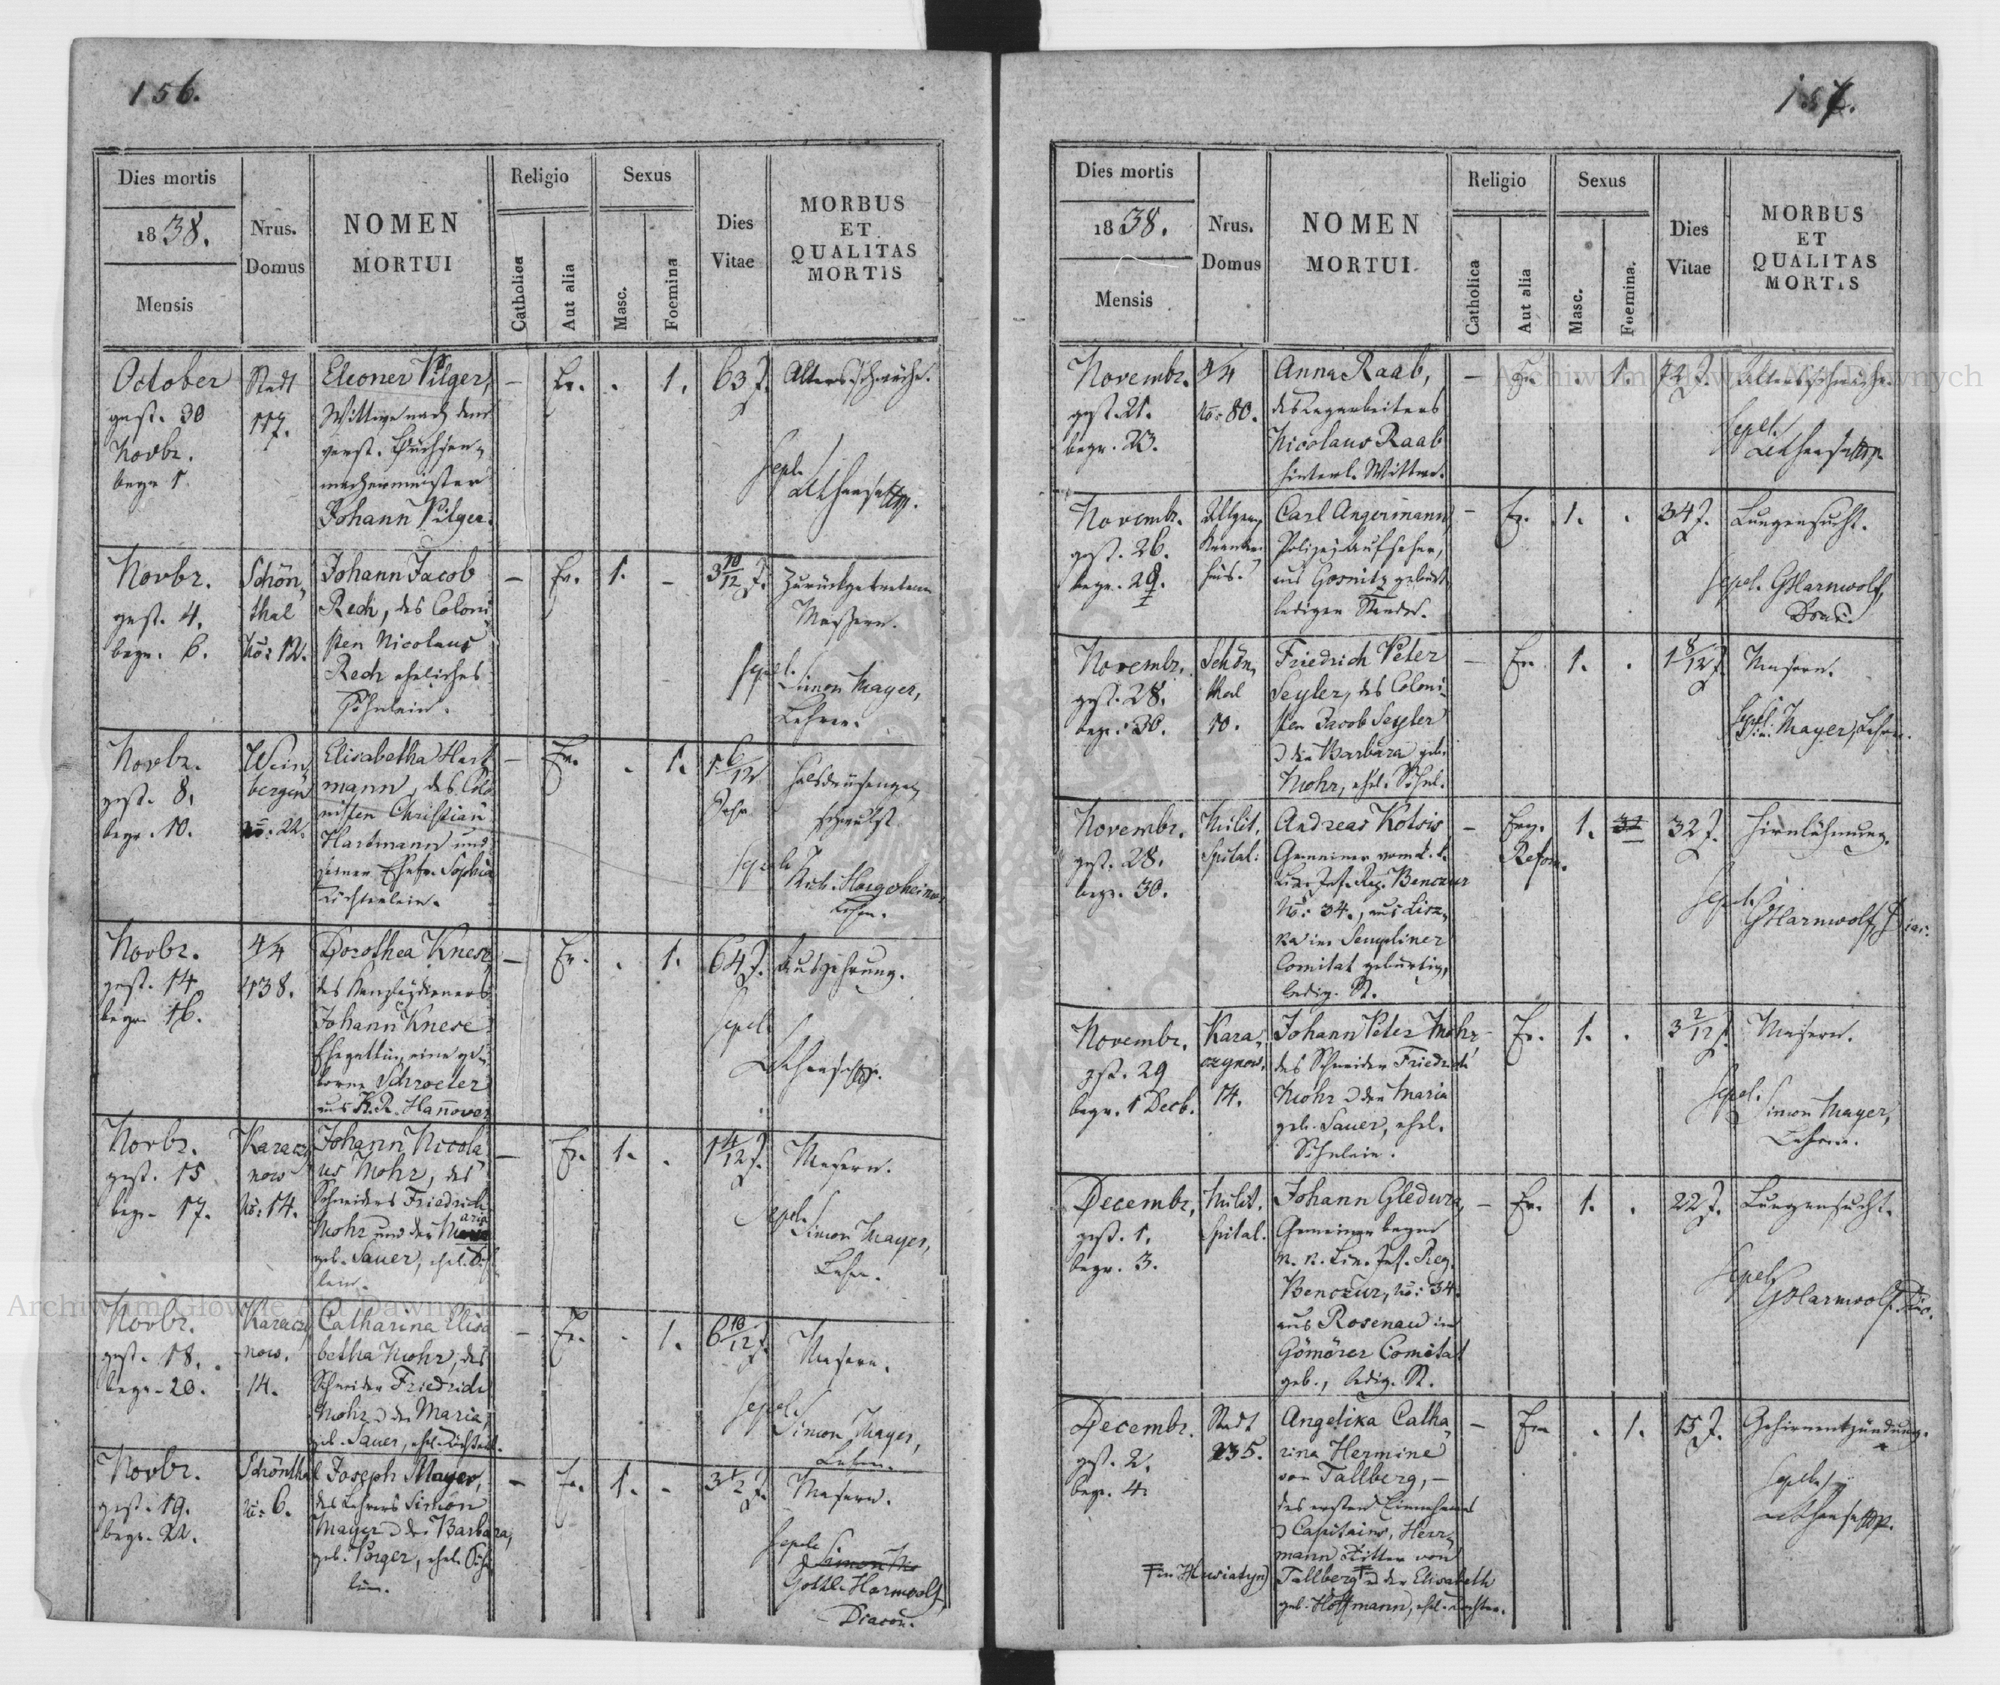 156.
Dies mortis
1838.
Mensis
Nrus.
Domus
NOMEN
MORTUI
Religio
Catholica
Aut alia
Sexus
Masc.
Foemina
Dies
Vitae
MORBUS
ET
QUALITAS
MORTIS
October
gest. 30
Novbr.
begr. 1.
Stadt
117.
Eleoner Pilger,
Wittwe nach dem
verst. Büchsen-
machermeister
Johann Pilger.
–
Ev.
.
1.
63 J.
Altersschwäche.
sepel.
Novbr.
gest. 4.
begr. 6.
Schön-
thal
No: 12.
Johann Jacob
Rech, des Coloni-
sten Nicolaus
Rech eheliches
Söhnlein.
–
Ev.
1.
–
3 10/12 J.
Zurückgetretene
Masern.
sepel.
Simon Mayer,
Lehrer.
Novbr.
gest. 8.
begr. 10.
Wein
bergen
No: 22.
Elisabetha Hart
mann, des Colo
nisten Christian
Hartmann und
seiner Ehefr. Sophia
Töchterlein.
–
Ev.
.
1.
1 6/12
Jahr
Halsdrüsenge-
schwulst
sepel.
Novbr.
gest. 14.
begr. 16.
4/4
438.
Dorothea Knese
des Kanzleydieners
Johann Knese
Ehegattin, eine ge-
borne Schroeter
aus K. R. Hannover
–
Ev.
.
1.
64 J.
Auszehrung.
sepel.
Novbr.
gest. 15
begr. 17.
Karacz
now
No: 14.
Johann Nicola
us Mohr, des
Schneiders Friedrich
Mohr und der Maria
geb. Sauer, ehel. Söhn
lein.
–
Ev.
1.
.
1 4/12 J.
Masern.
sepel.
Simon Mayer,
Lehr.
Novbr.
gest. 18.
begr. 20.
Karacz
now.
14.
Catharina Elisa
betha Mohr, des
Schneider Friedrich
Mohr u der Maria,
geb. Sauer, ehel. Töchterl.
–
Ev.
.
1.
6 10/12 J.
Masern.
sepel.
Simon Mayer,
Lehrer.
Novbr.
gest. 19.
begr. 22.
Schönthal
No: 6.
Joseph Mayer,
des Lehrers Simon
Mayer u der Barbara,
geb. Porger, ehel. Söhn
lein.
–
Ev.
1.
.
3 1/2 J.
Masern.
sepel.
Simon Ma
Gottl. Harmwolf,
Diacon.
157.
Dies mortis
1838.
Mensis
Nrus.
Domus
NOMEN
MORTUI
Religio
Catholica
Aut alia
Sexus
Masc.
Foemina.
Dies
Vitae
MORBUS
ET
QUALITAS
MORTIS
Novembr.
gest. 21.
begr. 23.
4/4
No: 80.
Anna Raab,
des Tagarbeiters
Nicolaus Raab
hinterl. Wittwe.
–
Ev.
.
1.
72 J.
Altersschwäche.
sepel.
Novembr.
gest. 26.
begr. 29.
Allgem.
Kranken
haus.
Carl Angermann,
Polizei Aufseher,
aus Gosnitz gebürt.
ledigen Standes.
–
Ev.
1.
.
34 J.
Lungensucht.
sepel. GHarmwolf,
Diac.
Novembr.
gest. 28.
begr. 30.
Schön,
thal
10.
Friedrich Peter
Seyler, des Coloni-
sten Jacob Seyler
u der Barbara geb.
Mohr, ehel. Söhnl.
–
Ev.
1.
.
1 8/12 J.
Masern.
sepel.
Sim. Mayer, Lehrer.
Novembr.
gest. 28.
begr. 30.
Milit.
Spital.
Andreas Kotsis
Gemeiner vom k. k.
Lin. Inf. Reg. Benczur
No: 34., aus Lisz-
ka im Sempliner
Comitat gebürtig,
ledig. St.
–
Evg.
Reform.
1.
32 J.
Hirnlähmung.
sepel.
GHarmwolf, Diac.
Novembr.
gest. 29
begr. 1 Decb.
Kara-
czynow,
14.
Johann Peter Mohr
des Schneider Friedrich
Mohr u der Maria
geb. Sauer, ehel.
Söhnlein.
–
Ev.
1.
.
3 2/12 J.
Masern.
sepel.
Simon Mayer,
Lehrer.
Decembr.
gest. 1.
begr. 3.
Milit.
Spital.
Johann Gledura,
Gemeiner beym
k. k. Lin. Inf. Reg.
Benczur, No: 34.
aus Rosenau im
Gömörer Comitat
geb., ledig. St.
–
Ev.
1.
.
22 J.
Lungensucht.
sepel.
GHarmwolf, Diac.
Decembr.
gest. 2.
begr. 4.
Stadt
235.
Angelika Catha
rina Hermine
von Tallberg, –
des ersten Einnehmers
u Capitains, Herr-
mann Ritter von
Tallberg u der Elisabeth
geb. Hoffmann, ehel. Tochter.
in Husiatyn)
–
Ev.
.
1.
15 J.
Gehirnentzündung.
sepel.
Archiwum Główne Akt Dawnych
Archiwum Główne Akt Dawnych